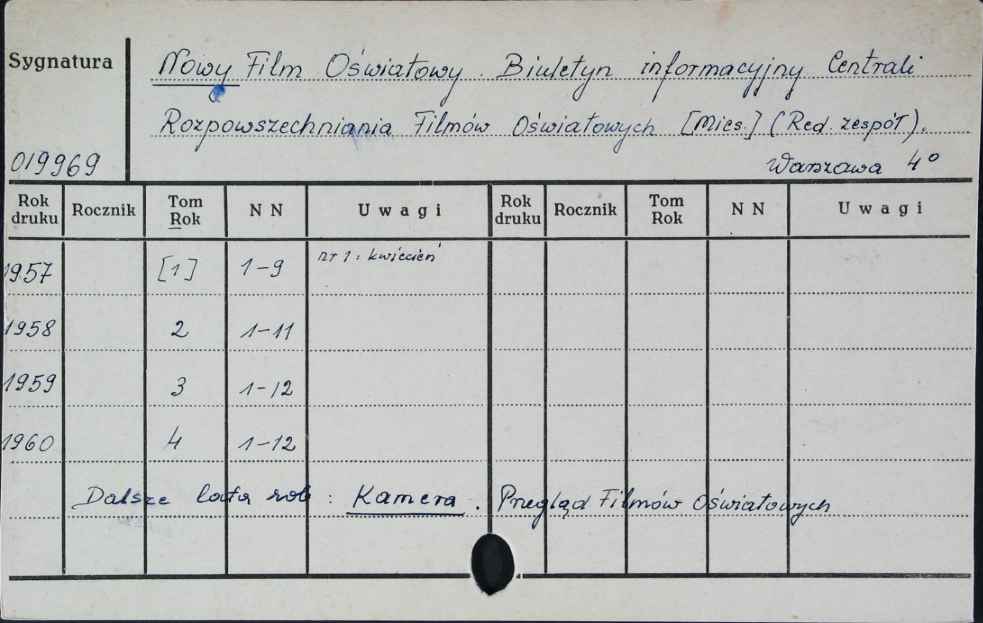 Sygnatura
Nowy Film Oświatowy. Biuletyn informacyjny Centrali
Rozpowszechniania Filmów Oświatowych [Mies.] (Red. zespół).
019969
Warszawa 4°
Rok druku Rocznik Tom Rok N N Uwagi Rok druku Rocznik Tom Rok N N Uwagi
1957 [1] 1-9 nr 1: kwiecień
1958 2 1-11
1959 3 1-12
1960 4 1-12
Dalsze lata zob: Kamera. Przegląd Filmów Oświatowych